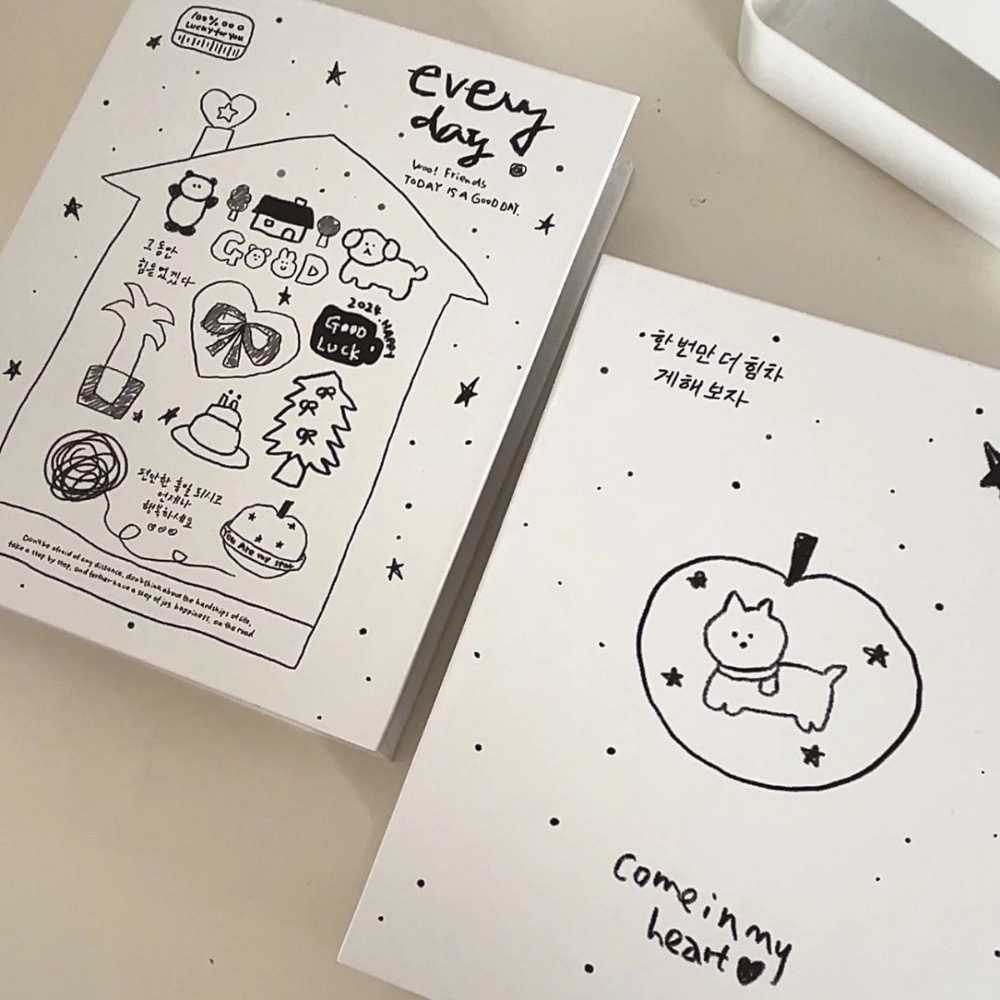 100%
Lucky for you
every
day
Woo! Friends
TODAY IS A GOOD DAY.
GOOD
그동안
힘들었겠다
2024 HAPPY
GOOD
LUCK
편안한 휴일 되시고
언제나
행복하세요
You Are my star
Don't be afraid of any distance, don't think about the hardships of life,
take a step by step, and farther have a step of joy, happiness, on the road
한 번만 더 힘차
게 해 보자
Come in my
heart